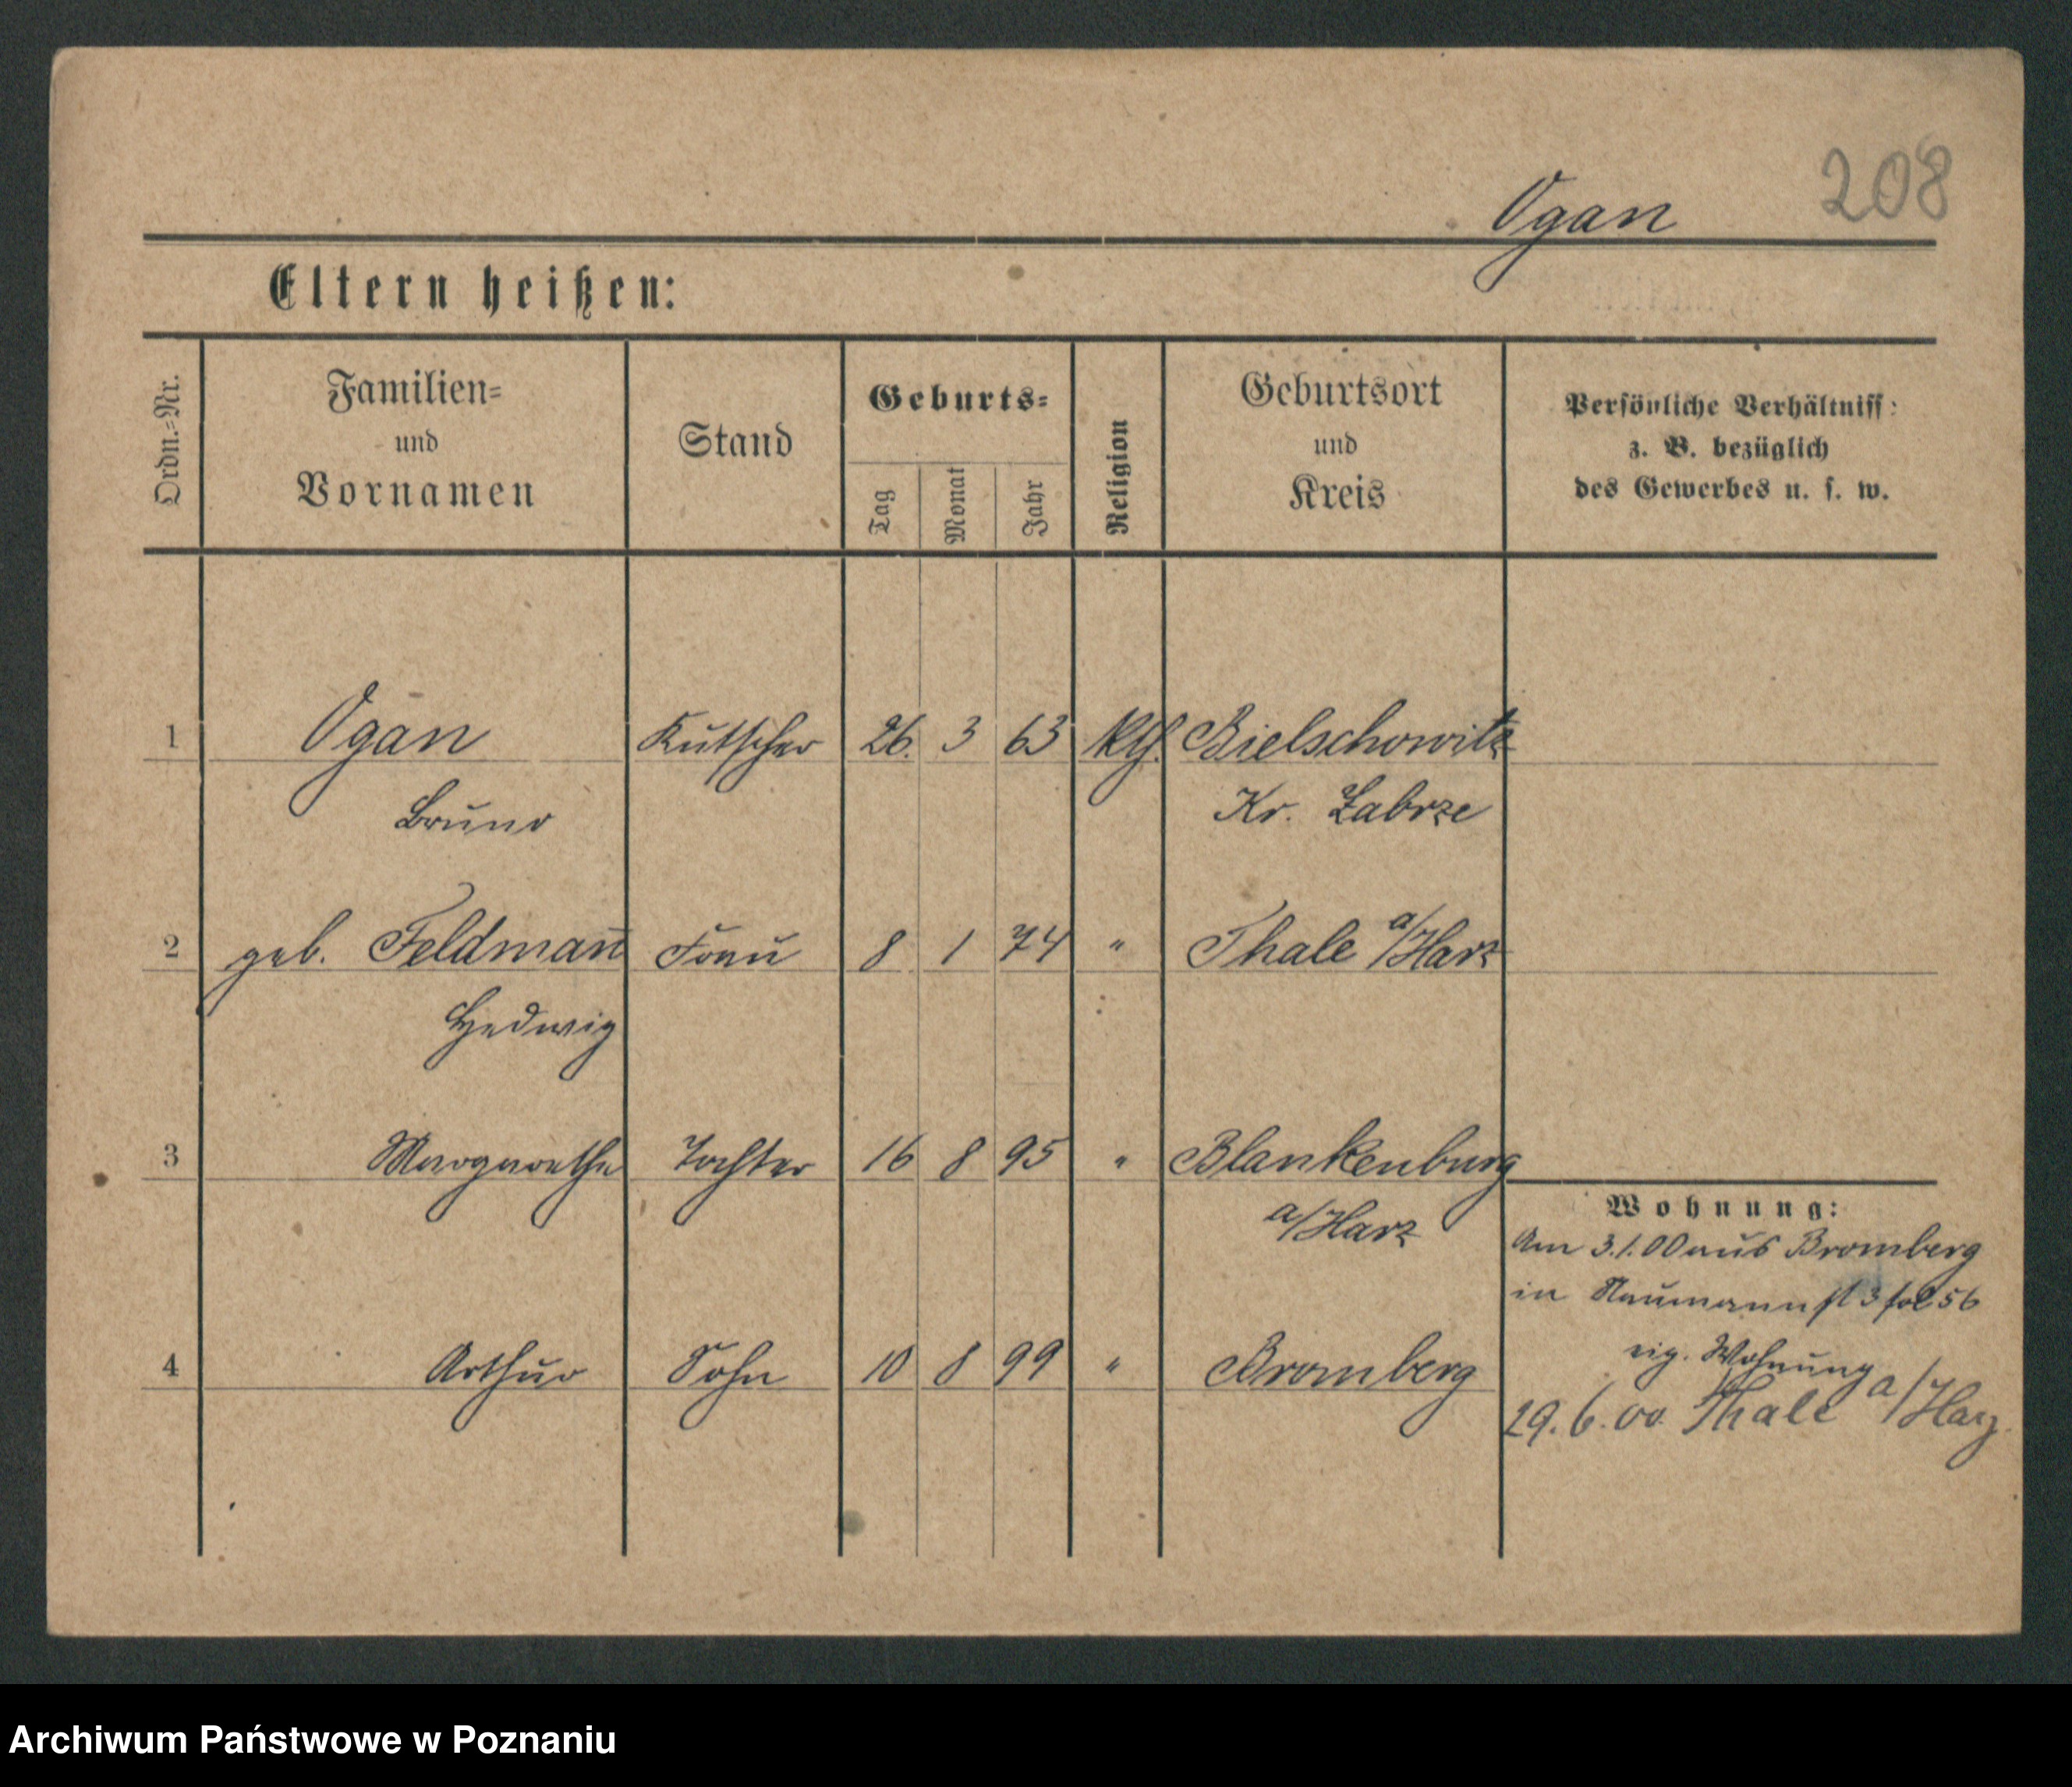 208
Ogan
Eltern heißen:
Ordn.=Nr.
Familien=
und
Vornamen
Stand
Geburts=
Tag
Monat
Jahr
Religion
Geburtsort
und
Kreis
Persönliche Verhältniss:
z. B. bezüglich
des Gewerbes u. s. w.
1 Ogan Kutscher 26. 3 63 kth. Bielschowitz
Bruno Kr. Zabrze
2 geb. Feldman̄ Frau 8 1 74 " Thale a/Harz
Hedwig
3 Margarethe Tochter 16 8 95 " Blankenburg
a/Harz
Wohnung:
Am 3.1.00 aus Bromberg
in Naumannst 3 fol 56
eig. Wohnung
4 Arthur Sohn 10 8 99 " Bromberg
29.6.00 Thale a/Harz
Archiwum Państwowe w Poznaniu